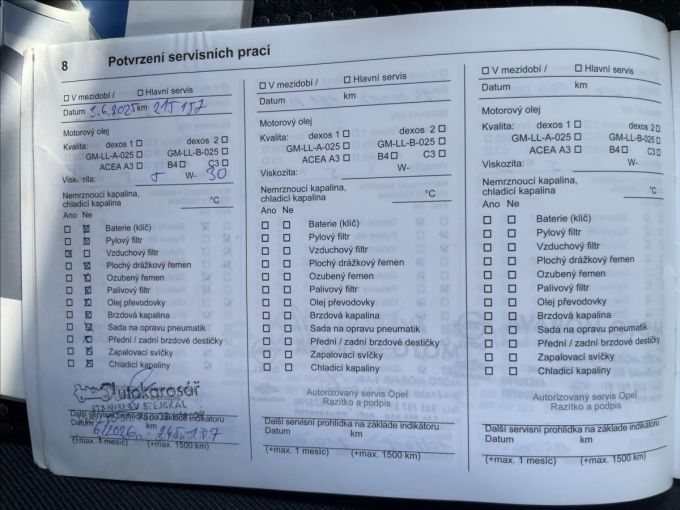 8 Potvrzení servisních prací
V mezidobí / Hlavní servis
Datum 3.6.2025 km 215 157
Motorový olej
Kvalita: dexos 1 dexos 2
GM-LL-A-025 GM-LL-B-025
ACEA A3 B4 C3
Viskozita: 5 W- 30
Nemrznoucí kapalina,
chladicí kapalina °C
Ano Ne
Baterie (klíč)
Pylový filtr
Vzduchový filtr
Plochý drážkový řemen
Ozubený řemen
Palivový filtr
Olej převodovky
Brzdová kapalina
Sada na opravu pneumatik
Přední / zadní brzdové destičky
Zapalovací svíčky
Chladicí kapaliny
Autokarosář
STANISLAV STEJSKAL
Další servisní prohlídka na základě indikátoru
Datum km
6/2026
(+max. 1 měsíc) (+max. 1500 km)
V mezidobí / Hlavní servis
Datum km
Motorový olej
Kvalita: dexos 1 dexos 2
GM-LL-A-025 GM-LL-B-025
ACEA A3 B4 C3
Viskozita: W-
Nemrznoucí kapalina,
chladicí kapalina °C
Ano Ne
Baterie (klíč)
Pylový filtr
Vzduchový filtr
Plochý drážkový řemen
Ozubený řemen
Palivový filtr
Olej převodovky
Brzdová kapalina
Sada na opravu pneumatik
Přední / zadní brzdové destičky
Zapalovací svíčky
Chladicí kapaliny
Autorizovaný servis Opel
Razítko a podpis
Další servisní prohlídka na základě indikátoru
Datum km
(+max. 1 měsíc) (+max. 1500 km)
V mezidobí / Hlavní servis
Datum km
Motorový olej
Kvalita: dexos 1 dexos 2
GM-LL-A-025 GM-LL-B-025
ACEA A3 B4 C3
Viskozita: W-
Nemrznoucí kapalina,
chladicí kapalina °C
Ano Ne
Baterie (klíč)
Pylový filtr
Vzduchový filtr
Plochý drážkový řemen
Ozubený řemen
Palivový filtr
Olej převodovky
Brzdová kapalina
Sada na opravu pneumatik
Přední / zadní brzdové destičky
Zapalovací svíčky
Chladicí kapaliny
Autorizovaný servis Opel
Razítko a podpis
Další servisní prohlídka na základě indikátoru
Datum km
(+max. 1 měsíc) (+max. 1500 km)